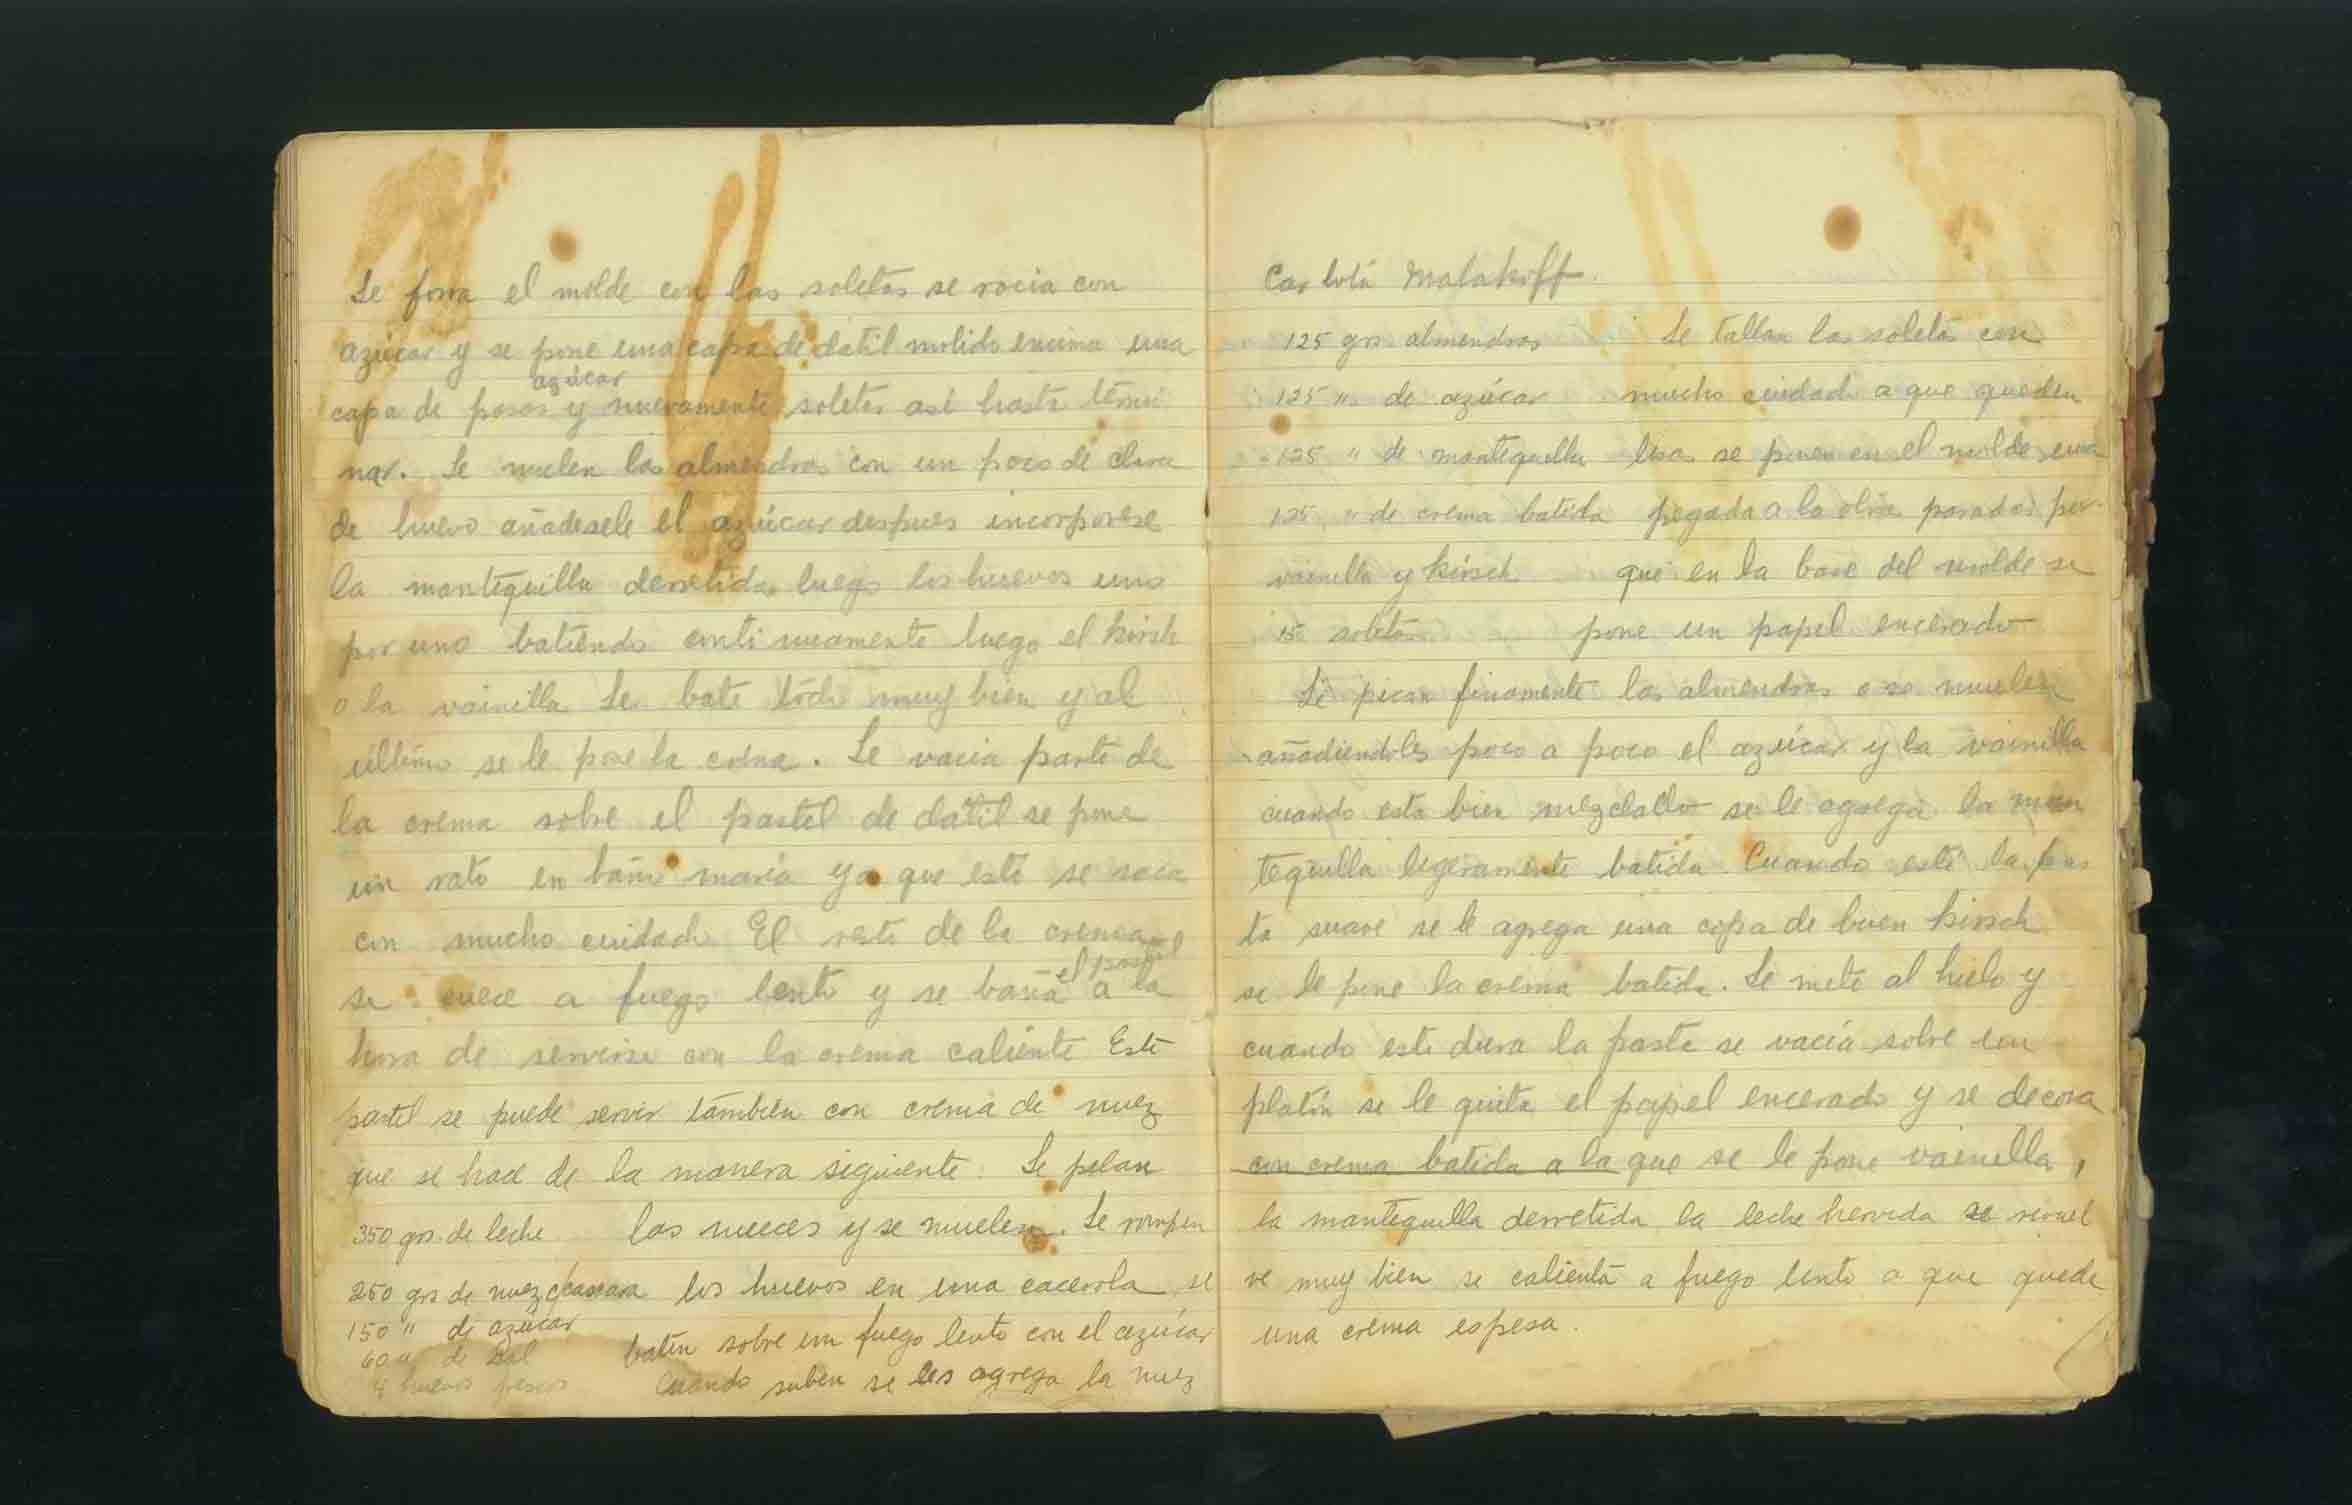 Se forra el molde con las soletas se rocia con
azúcar y se pone una capa de datil molido encima una
azúcar
capa de pasas y nuevamente soletas asi hasta termi
nar. Se muelen las almendras con un poco de clara
de huevo añadesele el azúcar despues incorporese
la mantequilla derretida, luego los huevos uno
por uno batiendo continuamente luego el kirsch
o la vainilla Se bate todo muy bien y al
ultimo se le pone la crema. Se vacia parte de
la crema sobre el pastel de dátil se pone
un rato en baño maría ya que esté se saca
con mucho cuidado El resto de la crema
el pastel
se cuece a fuego lento y se baña a la
hora de servirse con la crema caliente Este
pastel se puede servir también con crema de nuez
que se hace de la manera siguiente. Se pelan
350 grs. de leche las nueces y se muelen. Se rompen
250 grs de nuez c/cascara los huevos en una cacerola se
150 " de azúcar
baten sobre un fuego lento con el azúcar
60 " de
4 huevos frescos Cuando suben se les agrega la nuez
Carlota Malakoff.
125 grs almendras Se tallan las soletas con
125 " de azúcar mucho cuidado a que queden
125 " de mantequilla lisas se ponen en el molde una
125 " de crema batida pegada a la otra paradas por-
vainilla y kirsch que en la base del molde se
15 soletas pone un papel encerado
Se pican finamente las almendras o se muelen
añadiendoles poco a poco el azúcar y la vainilla
cuando esta bien mezclado se le agrega la man
tequilla ligeramente batida. Cuando esté la pas
ta suave se le agrega una copa de buen kirsch
se le pone la crema batida. Se mete al hielo y
cuando este dura la pasta se vacía sobre un
platón se le quita el papel encerado y se decora
con crema batida a la que se le pone vainilla,
la mantequilla derretida la leche hervida se revuel
ve muy bien se calienta a fuego lento a que quede
una crema espesa.